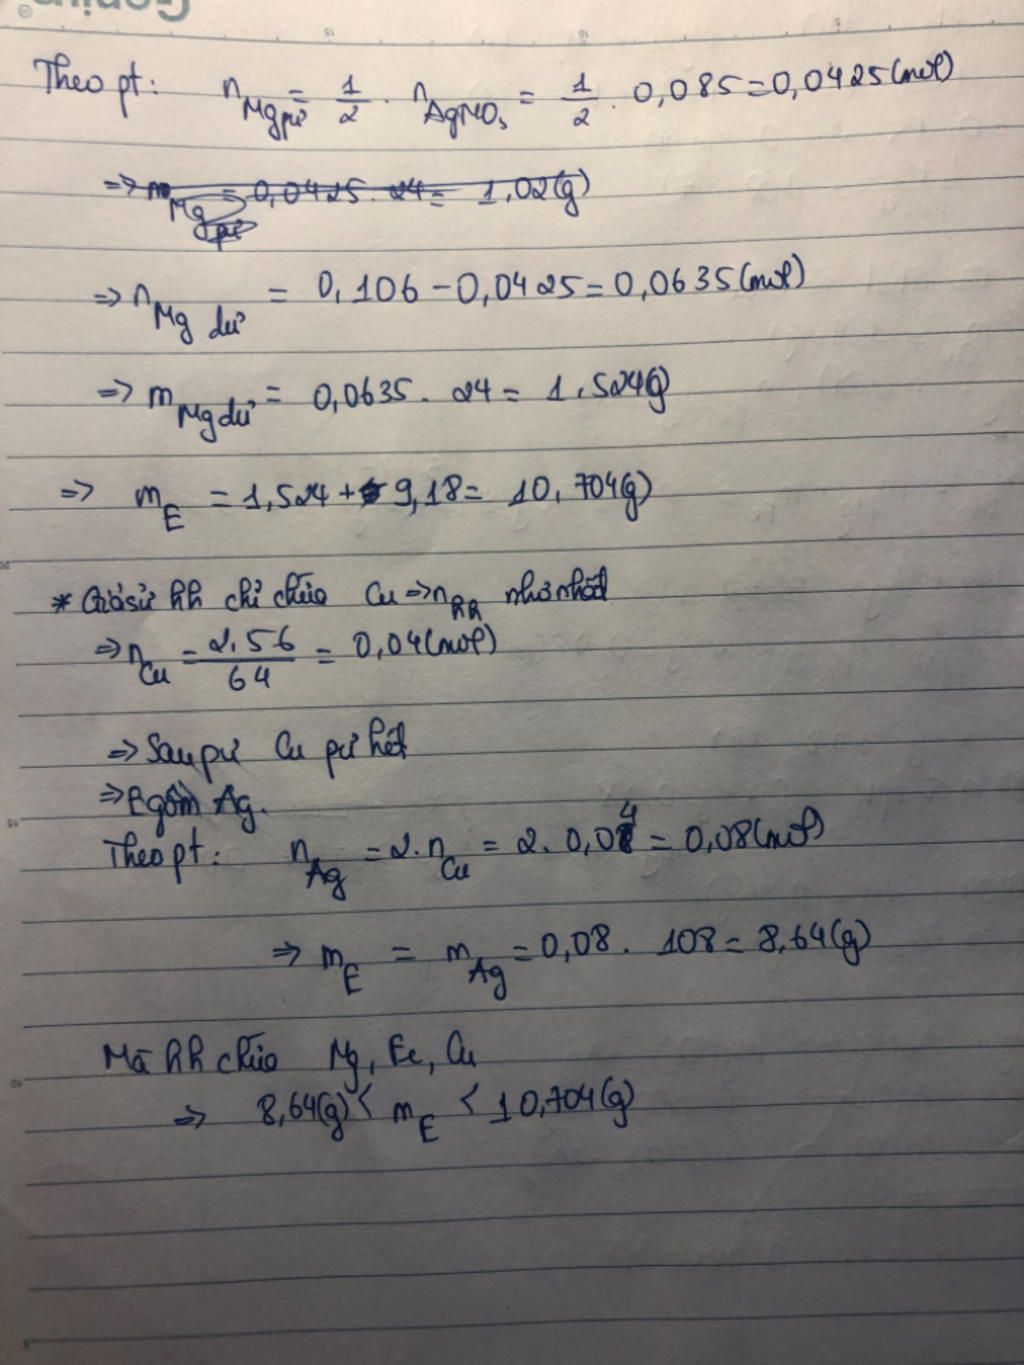 Theo pt: n Mg pư = 1/2 . n AgNO3 = 1/2 . 0,085 = 0,0425 (mol)
=> m Mg pư = 0,0425 . 24 = 1,02 (g)
=> n Mg dư = 0,106 - 0,0425 = 0,0635 (mol)
=> m Mg dư = 0,0635 . 24 = 1,524 (g)
=> m E = 1,524 + 9,18 = 10,704 (g)
* Giả sử hh chỉ chứa Cu => n hh nhỏ nhất
=> n Cu = 2,56/64 = 0,04 (mol)
=> Sau pư Cu pư hết
=> E gồm Ag.
Theo pt: n Ag = 2. n Cu = 2. 0,04 = 0,08 (mol)
=> m E = m Ag = 0,08 . 108 = 8,64 (g)
Mà hh chứa Mg, Fe, Cu
=> 8,64 (g) < m E < 10,704 (g)